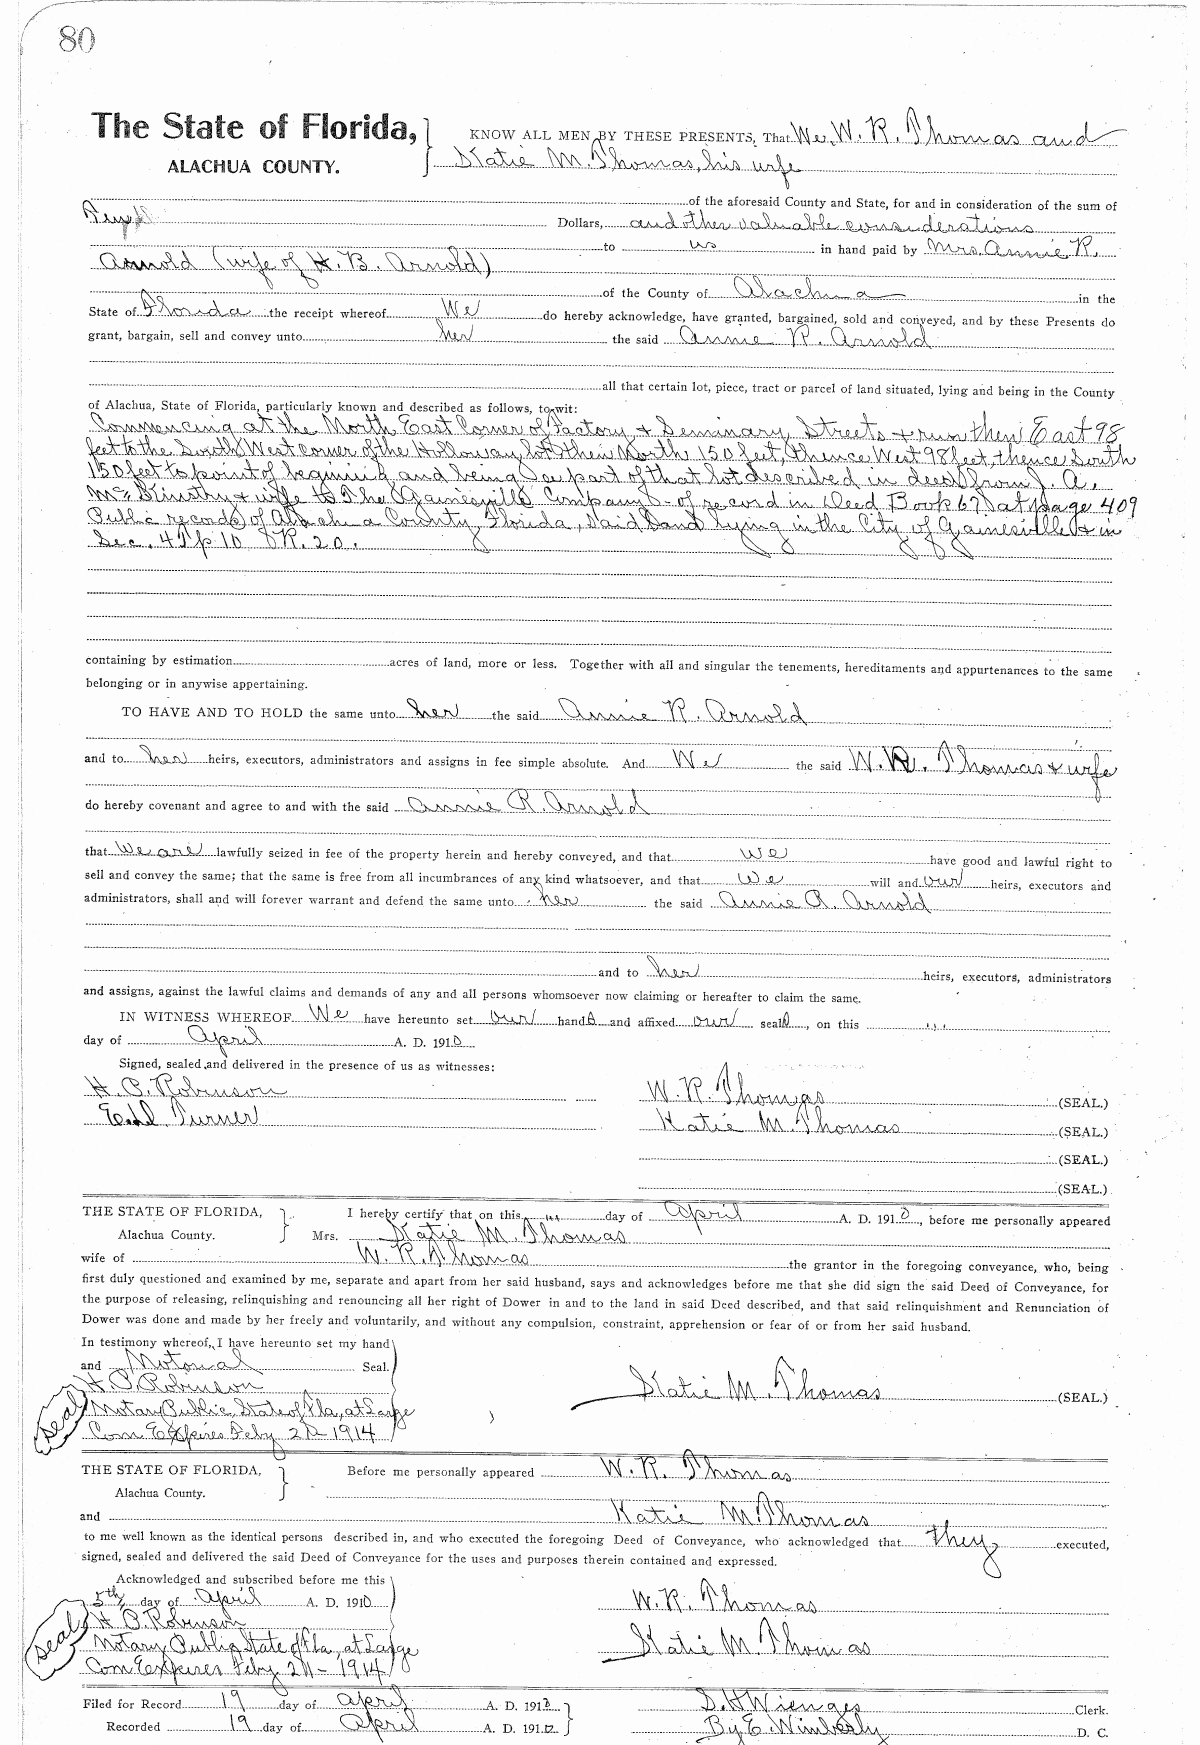 80
The State of Florida, KNOW ALL MEN BY THESE PRESENTS, That We, W. R. Thomas and
ALACHUA COUNTY. Katie M. Thomas, his wife
of the aforesaid County and State, for and in consideration of the sum of
Dollars, and other valuable considerations
to us in hand paid by Mrs. Annie R.
Arnold (wife of H. B. Arnold)
of the County of Alachua in the
State of Florida the receipt whereof We do hereby acknowledge, have granted, bargained, sold and conveyed, and by these Presents do
grant, bargain, sell and convey unto her the said Annie R. Arnold
all that certain lot, piece, tract or parcel of land situated, lying and being in the County
of Alachua, State of Florida, particularly known and described as follows, to wit:
Commencing at the North East Corner of Factory & Seminary Streets & run then East 98
feet to the South West corner of the Holloway lot then North 150 feet, thence West 98 feet, thence South
150 feet to point of begining and being a part of that lot described in deed from J. A.
McKinstry & wife to The Gainesville Company - of record in Deed Book 67 at page 409
Public records of Alachua County, Florida, Said Land lying in the City of Gainesville & in
Sec. 4 Tp 10 R. 20.
containing by estimation acres of land, more or less. Together with all and singular the tenements, hereditaments and appurtenances to the same
belonging or in anywise appertaining.
TO HAVE AND TO HOLD the same unto her the said Annie R. Arnold
and to her heirs, executors, administrators and assigns in fee simple absolute. And We the said W. R. Thomas & wife
do hereby covenant and agree to and with the said Annie R. Arnold
that We are lawfully seized in fee of the property herein and hereby conveyed, and that we have good and lawful right to
sell and convey the same; that the same is free from all incumbrances of any kind whatsoever, and that we will and our heirs, executors and
administrators, shall and will forever warrant and defend the same unto her the said Annie R. Arnold
and to her heirs, executors, administrators
and assigns, against the lawful claims and demands of any and all persons whomsoever now claiming or hereafter to claim the same.
IN WITNESS WHEREOF We have hereunto set our hands and affixed our seals, on this
day of April A. D. 1910
Signed, sealed and delivered in the presence of us as witnesses:
H. P. Robinson W. R. Thomas (SEAL.)
Ed Turner Katie M. Thomas (SEAL.)
(SEAL.)
(SEAL.)
THE STATE OF FLORIDA, I hereby certify that on this day of April A. D. 1910, before me personally appeared
Alachua County. Mrs. Katie M. Thomas
wife of W. R. Thomas the grantor in the foregoing conveyance, who, being
first duly questioned and examined by me, separate and apart from her said husband, says and acknowledges before me that she did sign the said Deed of Conveyance, for
the purpose of releasing, relinquishing and renouncing all her right of Dower in and to the land in said Deed described, and that said relinquishment and Renunciation of
Dower was done and made by her freely and voluntarily, and without any compulsion, constraint, apprehension or fear of or from her said husband.
In testimony whereof, I have hereunto set my hand
and Notorial Seal.
H. P. Robinson Katie M. Thomas (SEAL.)
seal Notary Public State of Fla, at Large
Com Expires Feby 1914
THE STATE OF FLORIDA, Before me personally appeared W. R. Thomas
Alachua County.
and Katie M. Thomas
to me well known as the identical persons described in, and who executed the foregoing Deed of Conveyance, who acknowledged that they executed,
signed, sealed and delivered the said Deed of Conveyance for the uses and purposes therein contained and expressed.
Acknowledged and subscribed before me this
5th day of April A. D. 1910 W. R. Thomas
H. P. Robinson
seal Notary Public State of Fla, at Large Katie M. Thomas
Com Expires Feby - 1914
Filed for Record 19 day of April A. D. 191 S. H. Wienges Clerk.
Recorded 19 day of April A. D. 191 By E. Wimberly D. C.